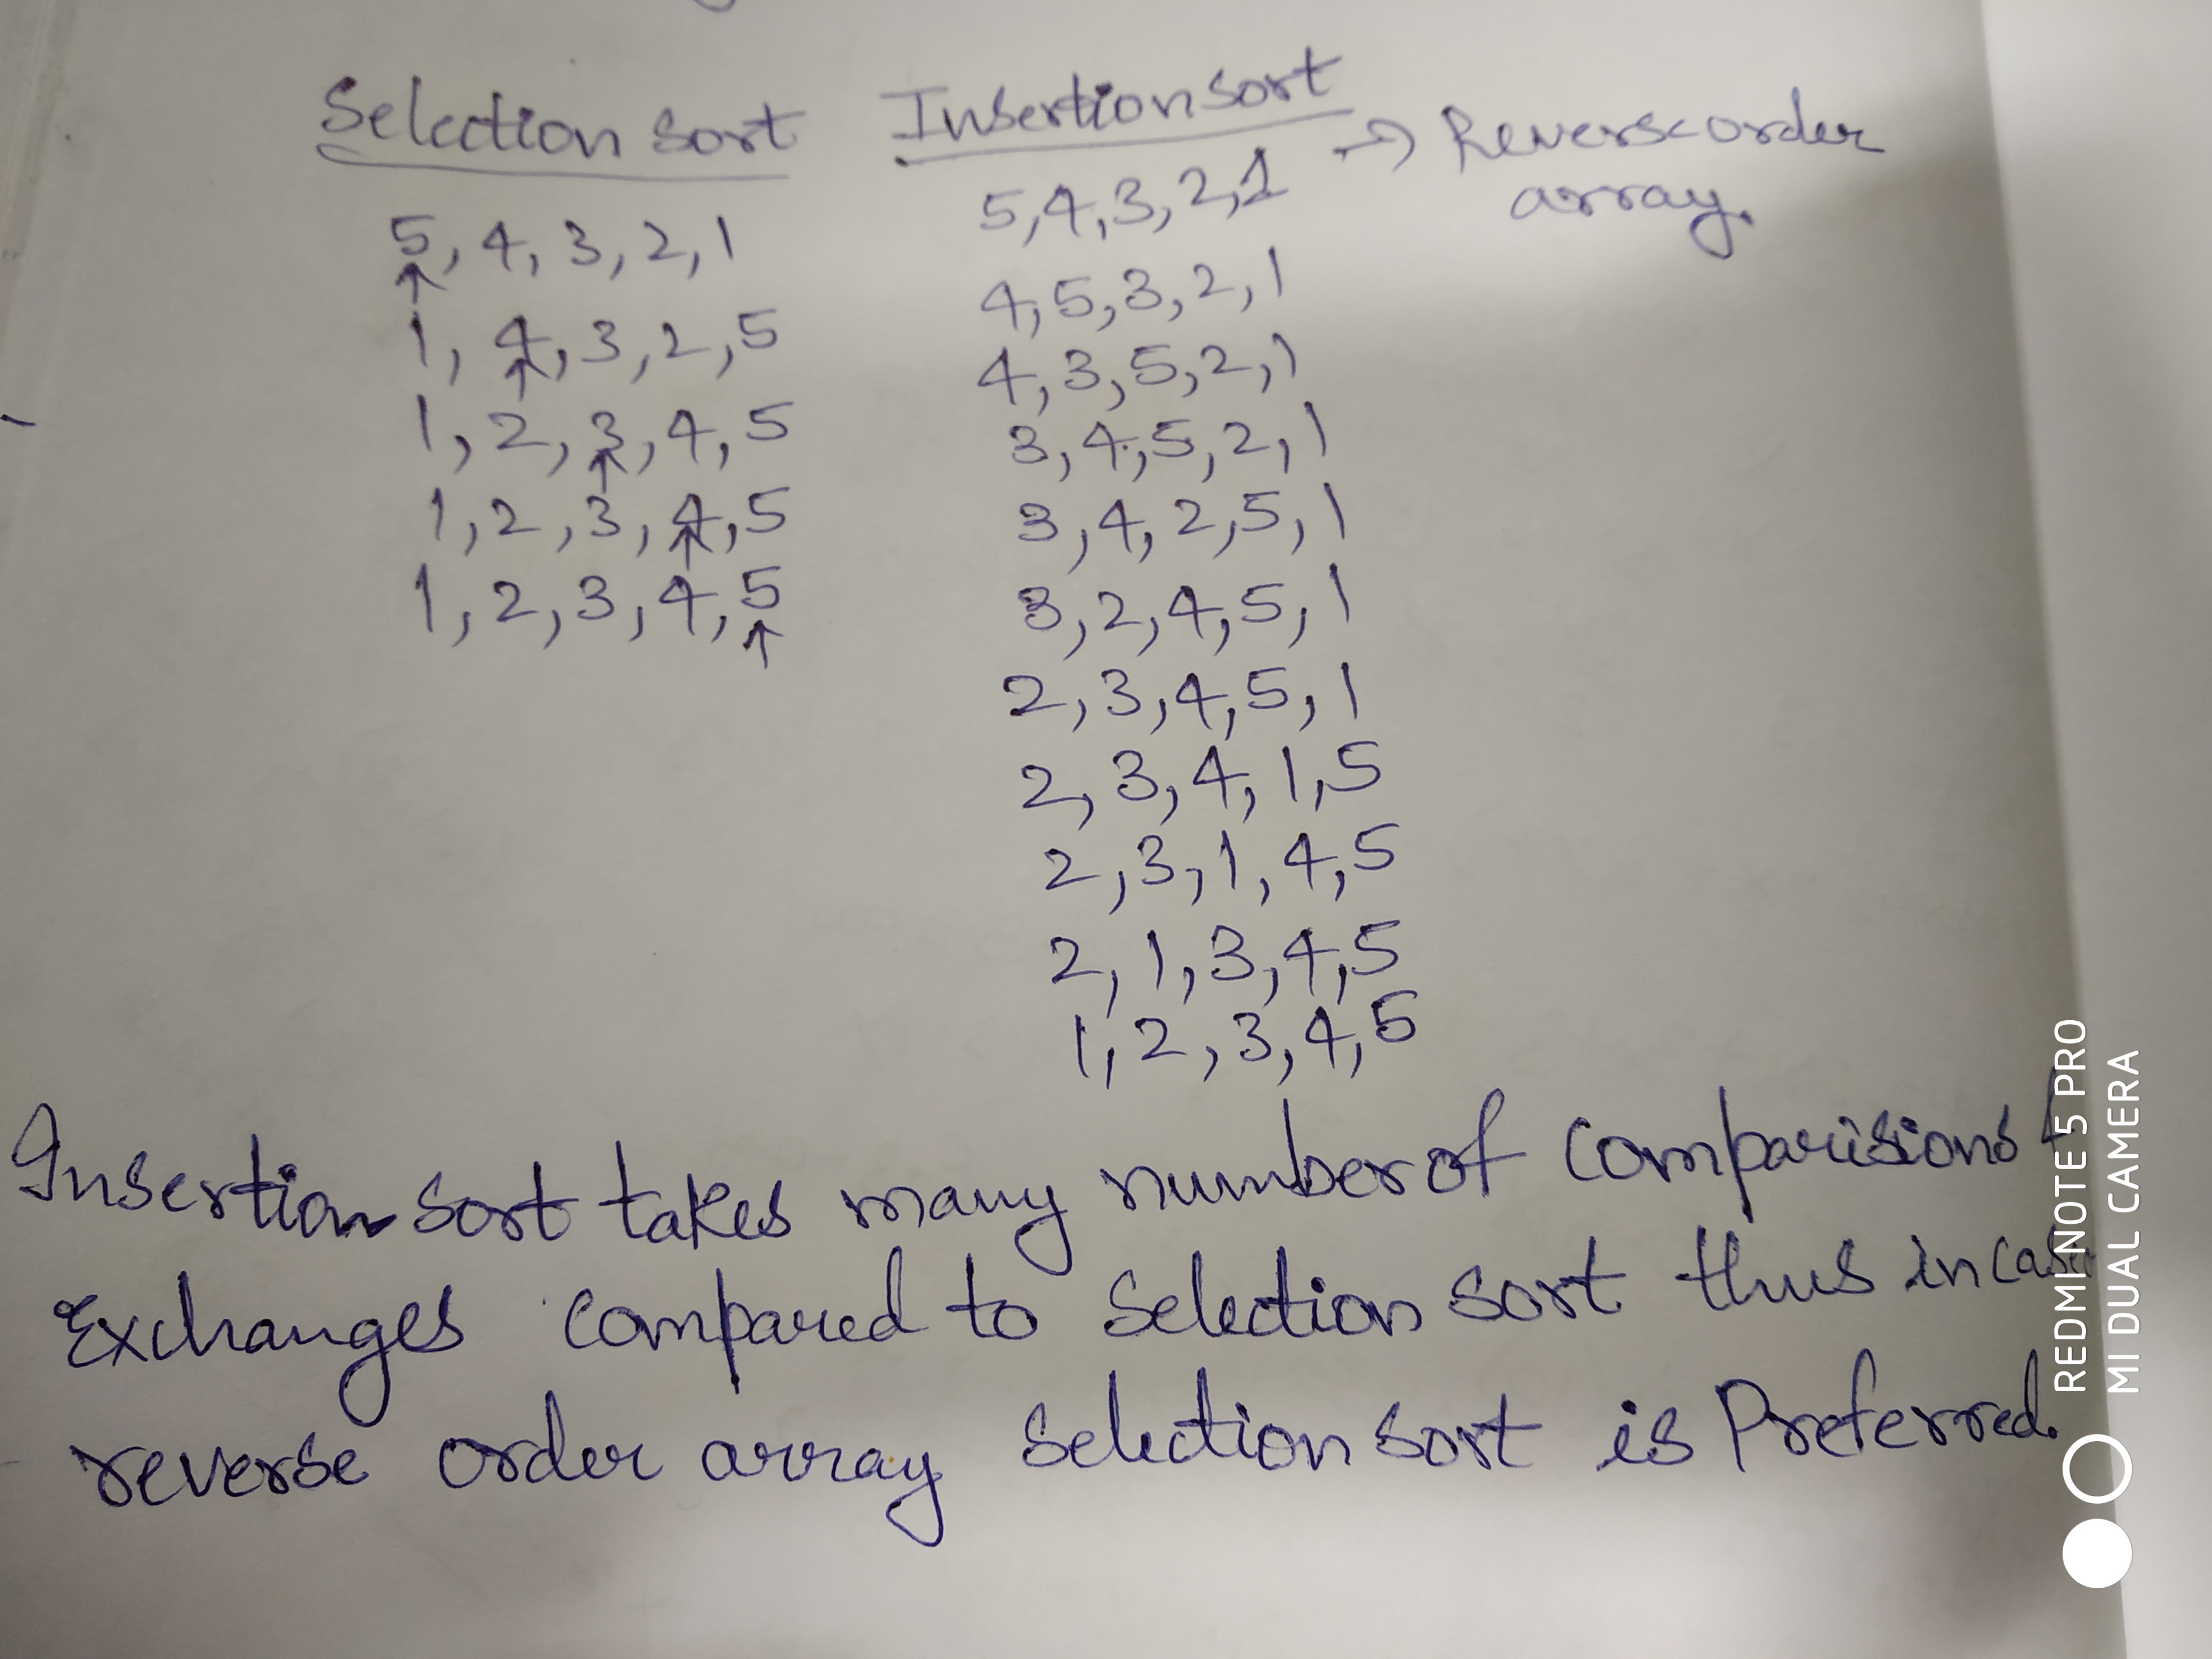 Selection sort
5, 4, 3, 2, 1
1, 4, 3, 2, 5
1, 2, 3, 4, 5
1, 2, 3, 4, 5
1, 2, 3, 4, 5
Insertion sort → Reverse order
array.
5, 4, 3, 2, 1
4, 5, 3, 2, 1
4, 3, 5, 2, 1
3, 4, 5, 2, 1
3, 4, 2, 5, 1
3, 2, 4, 5, 1
2, 3, 4, 5, 1
2, 3, 4, 1, 5
2, 3, 1, 4, 5
2, 1, 3, 4, 5
1, 2, 3, 4, 5
Insertion sort takes many number of comparisions &
exchanges compared to selection sort thus in case
reverse order array selection sort is Preferred.
REDMI NOTE 5 PRO
MI DUAL CAMERA